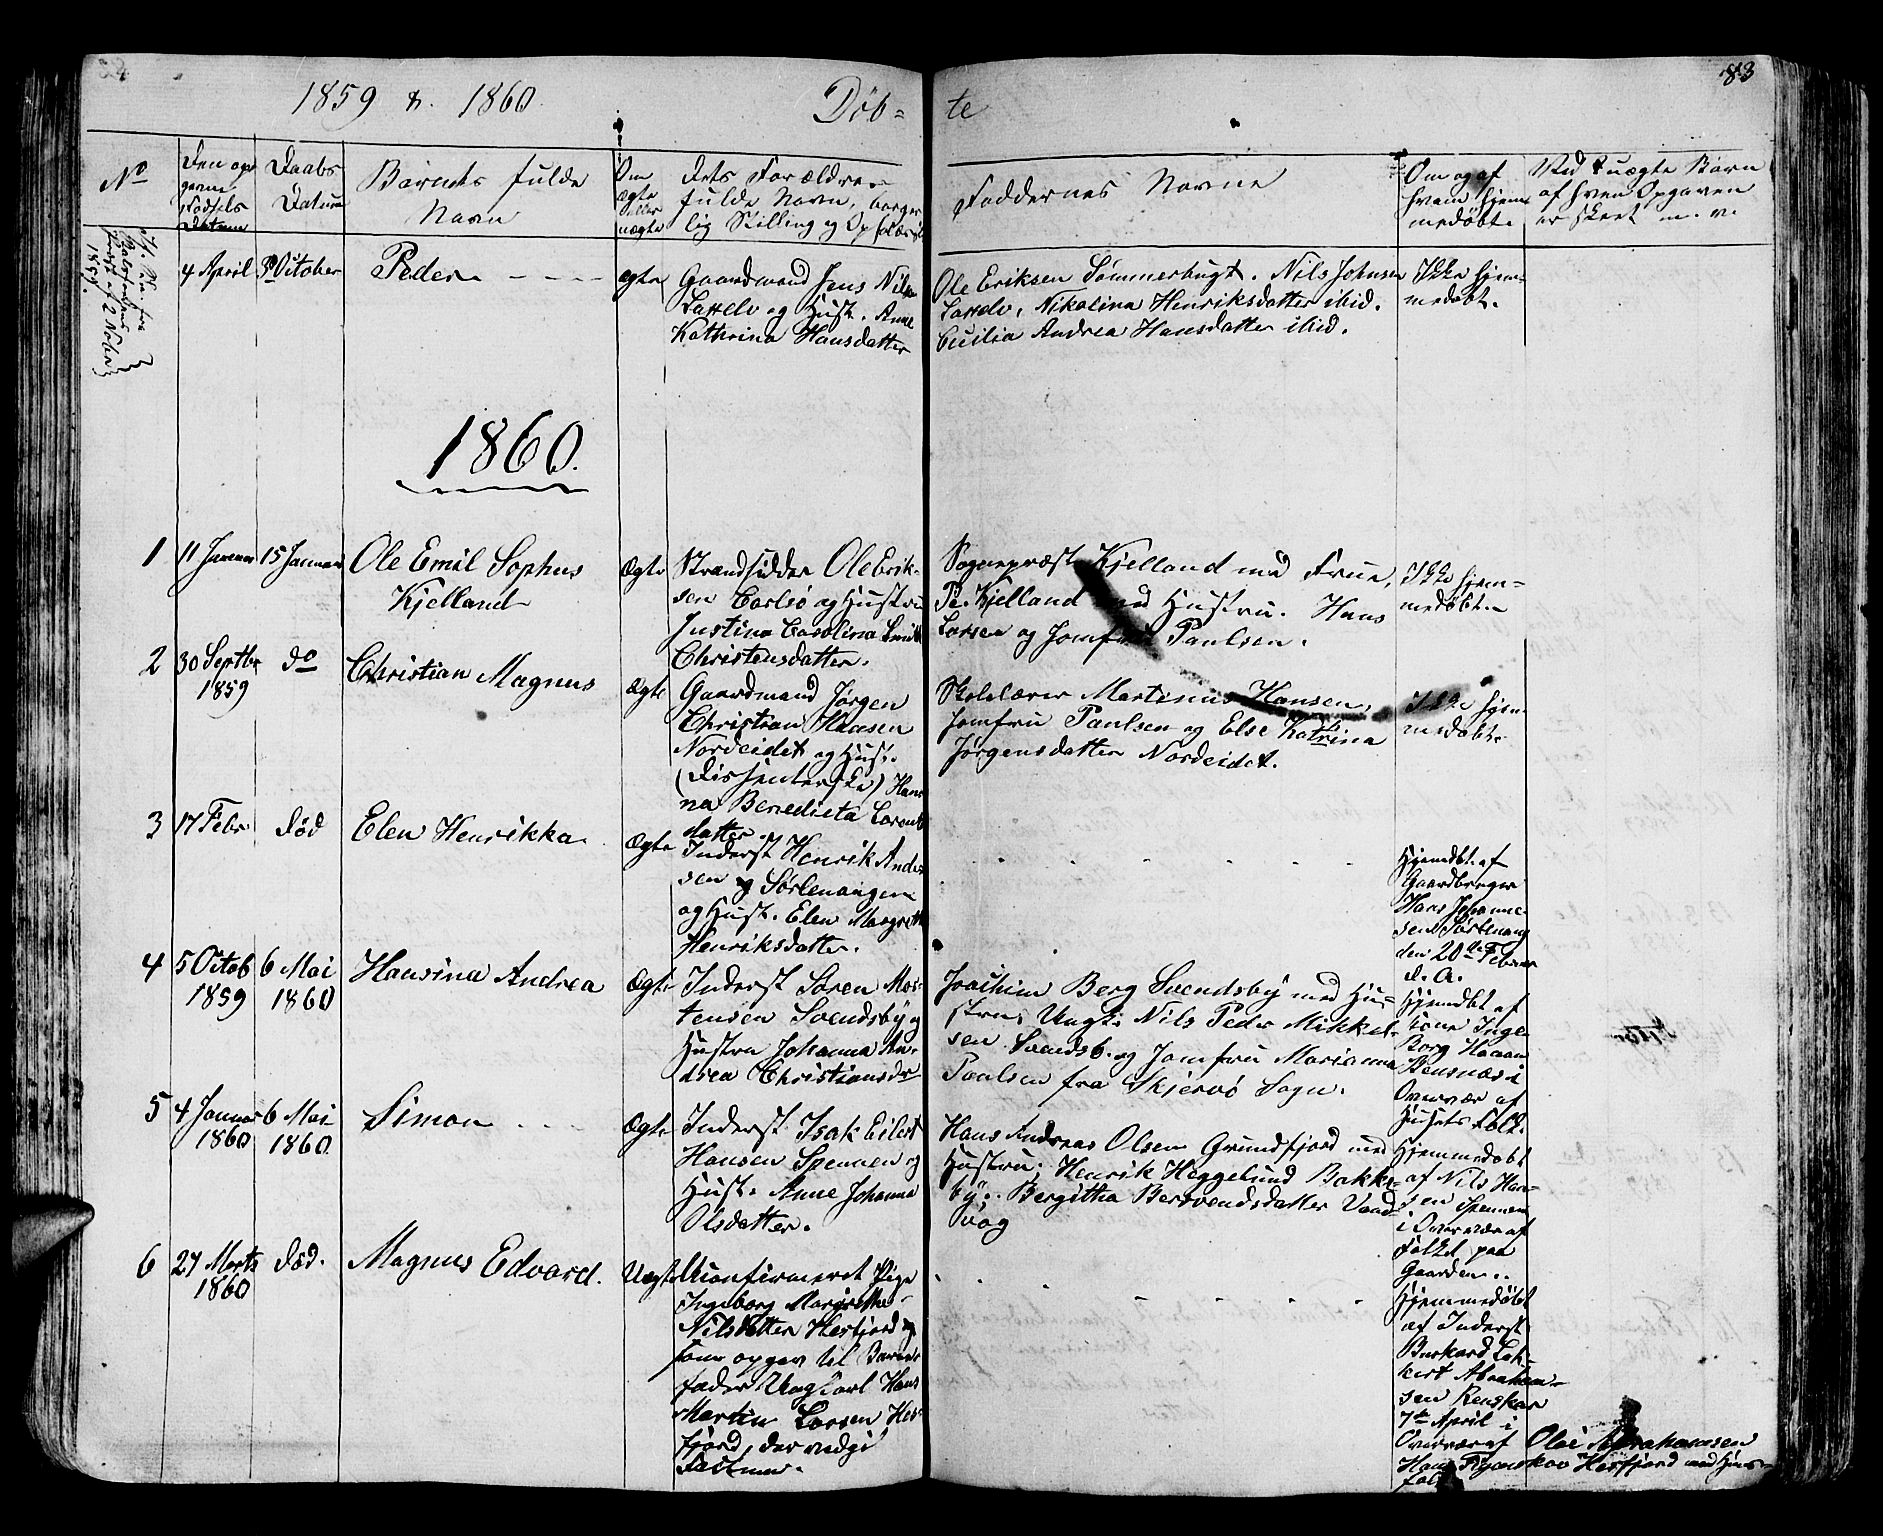 83
1859 & 1860.
Døb=
te
No
Den op=
gevne
Fødsels
Datum
Daabs
Datum
Barnets fulde
Navn
Om
ægte
eller
uægte
Dets Forældres
fulde Navn, borger
lig Stilling og Opholdssted
Faddernes Navne
Om og af
hvem hjem
medøbt
Ved Uægte Børn
af hvem Opgaven
er skeet m. v.
fra
af 2 Nobr
1859.
4 April
October
Peder
ægte
Gaardmand Jens Nils
Lasselv og Hust. Anne
Kathrina Hansdatter
Ole Eriksen Sommerbugt. Nils Johnsen
Lasselv, Nikolina Henriksdatter ibid.
Cecilia Andrea Hansdatter ibid.
Ikke hjem=
medøbt.
1860.
1
11 Januar
15 Januar
Ole Emil Sophus
Kjelland
Ægte
Strandsidder Ole Erik=
sen Carlsø og Hustru
Justina Carolina
Christensdatter.
Sognepræst Kjelland med Frue,
P. Kjelland med Hustru. Hans
Larsen og Jomfru Paulsen.
Ikke hjem=
medøbt
2
30 Septbr
1859
do
Christian Magnus
Ægte
Gaardmand Jørgen
Christian Hansen
Nordeidet og Hust.
(Dissenterske) Han
na Benedicta Lorents
datter
Skolelærer Martinus Hansen,
Jomfru Paulsen og Else Katrina
Jørgensdatter Nordeidet.
Ikke hjem
medøbt
3
17 Febr
død
Elen Henrikka
Ægte
Inderst Henrik Ander
sen Sørlenangen
og Hust. Elen Margrethe
Henriksdatter.
Hjemdbt. af
Gaardbruger
Hans Johanne
sen Sørlenang
den 20de Februar
d. A.
4
5 Octob
1859
6 Mai
1860
Hansina Andrea
Ægte
Inderst Søren Mor
tensen Svendsby og
Hustru Johanna An
drea Christiansdr
Joachim Berg Svendsby med Hu=
stru, Ungk. Nils Peder Mikkel=
sen Svendsb. og Jomfru Marianna
Paulsen fra Skjervø Sogn.
Hjemdbt af
Kone Inge
borg Haaan
Stensnæs i
Overvær af
Husets Folk.
5
4 Januar
1860
6 Mai
1860.
Simon
Ægte
Inderst Isak Eilert
Hansen Spennen og
Hust. Anne Johanna
Olsdatter.
Hans Andreas Olsen Grundfjord med
Hustru; Henrik Heggelund Bakke=
by. Bergitha Bersvendsdatter Vand
våg
Hjemmedøbt
af Nils Han=
sen Spennen
i Overvær af
Folket paa
Gaarden.
6
27 Marts
1860
død.
Magnus Edvard.
Uægte
Ukonfirmeret Pige
Ingeborg Margrethe
Nilsdatter Hesfjord
som opgav til Barne
fader Ungkarl Hans
Martin Larsen Hes
fjord, der vedgi
Hjemmedøbt
af Inderst
Burkard
Abraham=
sen Renskar
7de April i
Overvær af
Hans
Folk
Oloi Abrahamsen
Hesfjord med Hus=